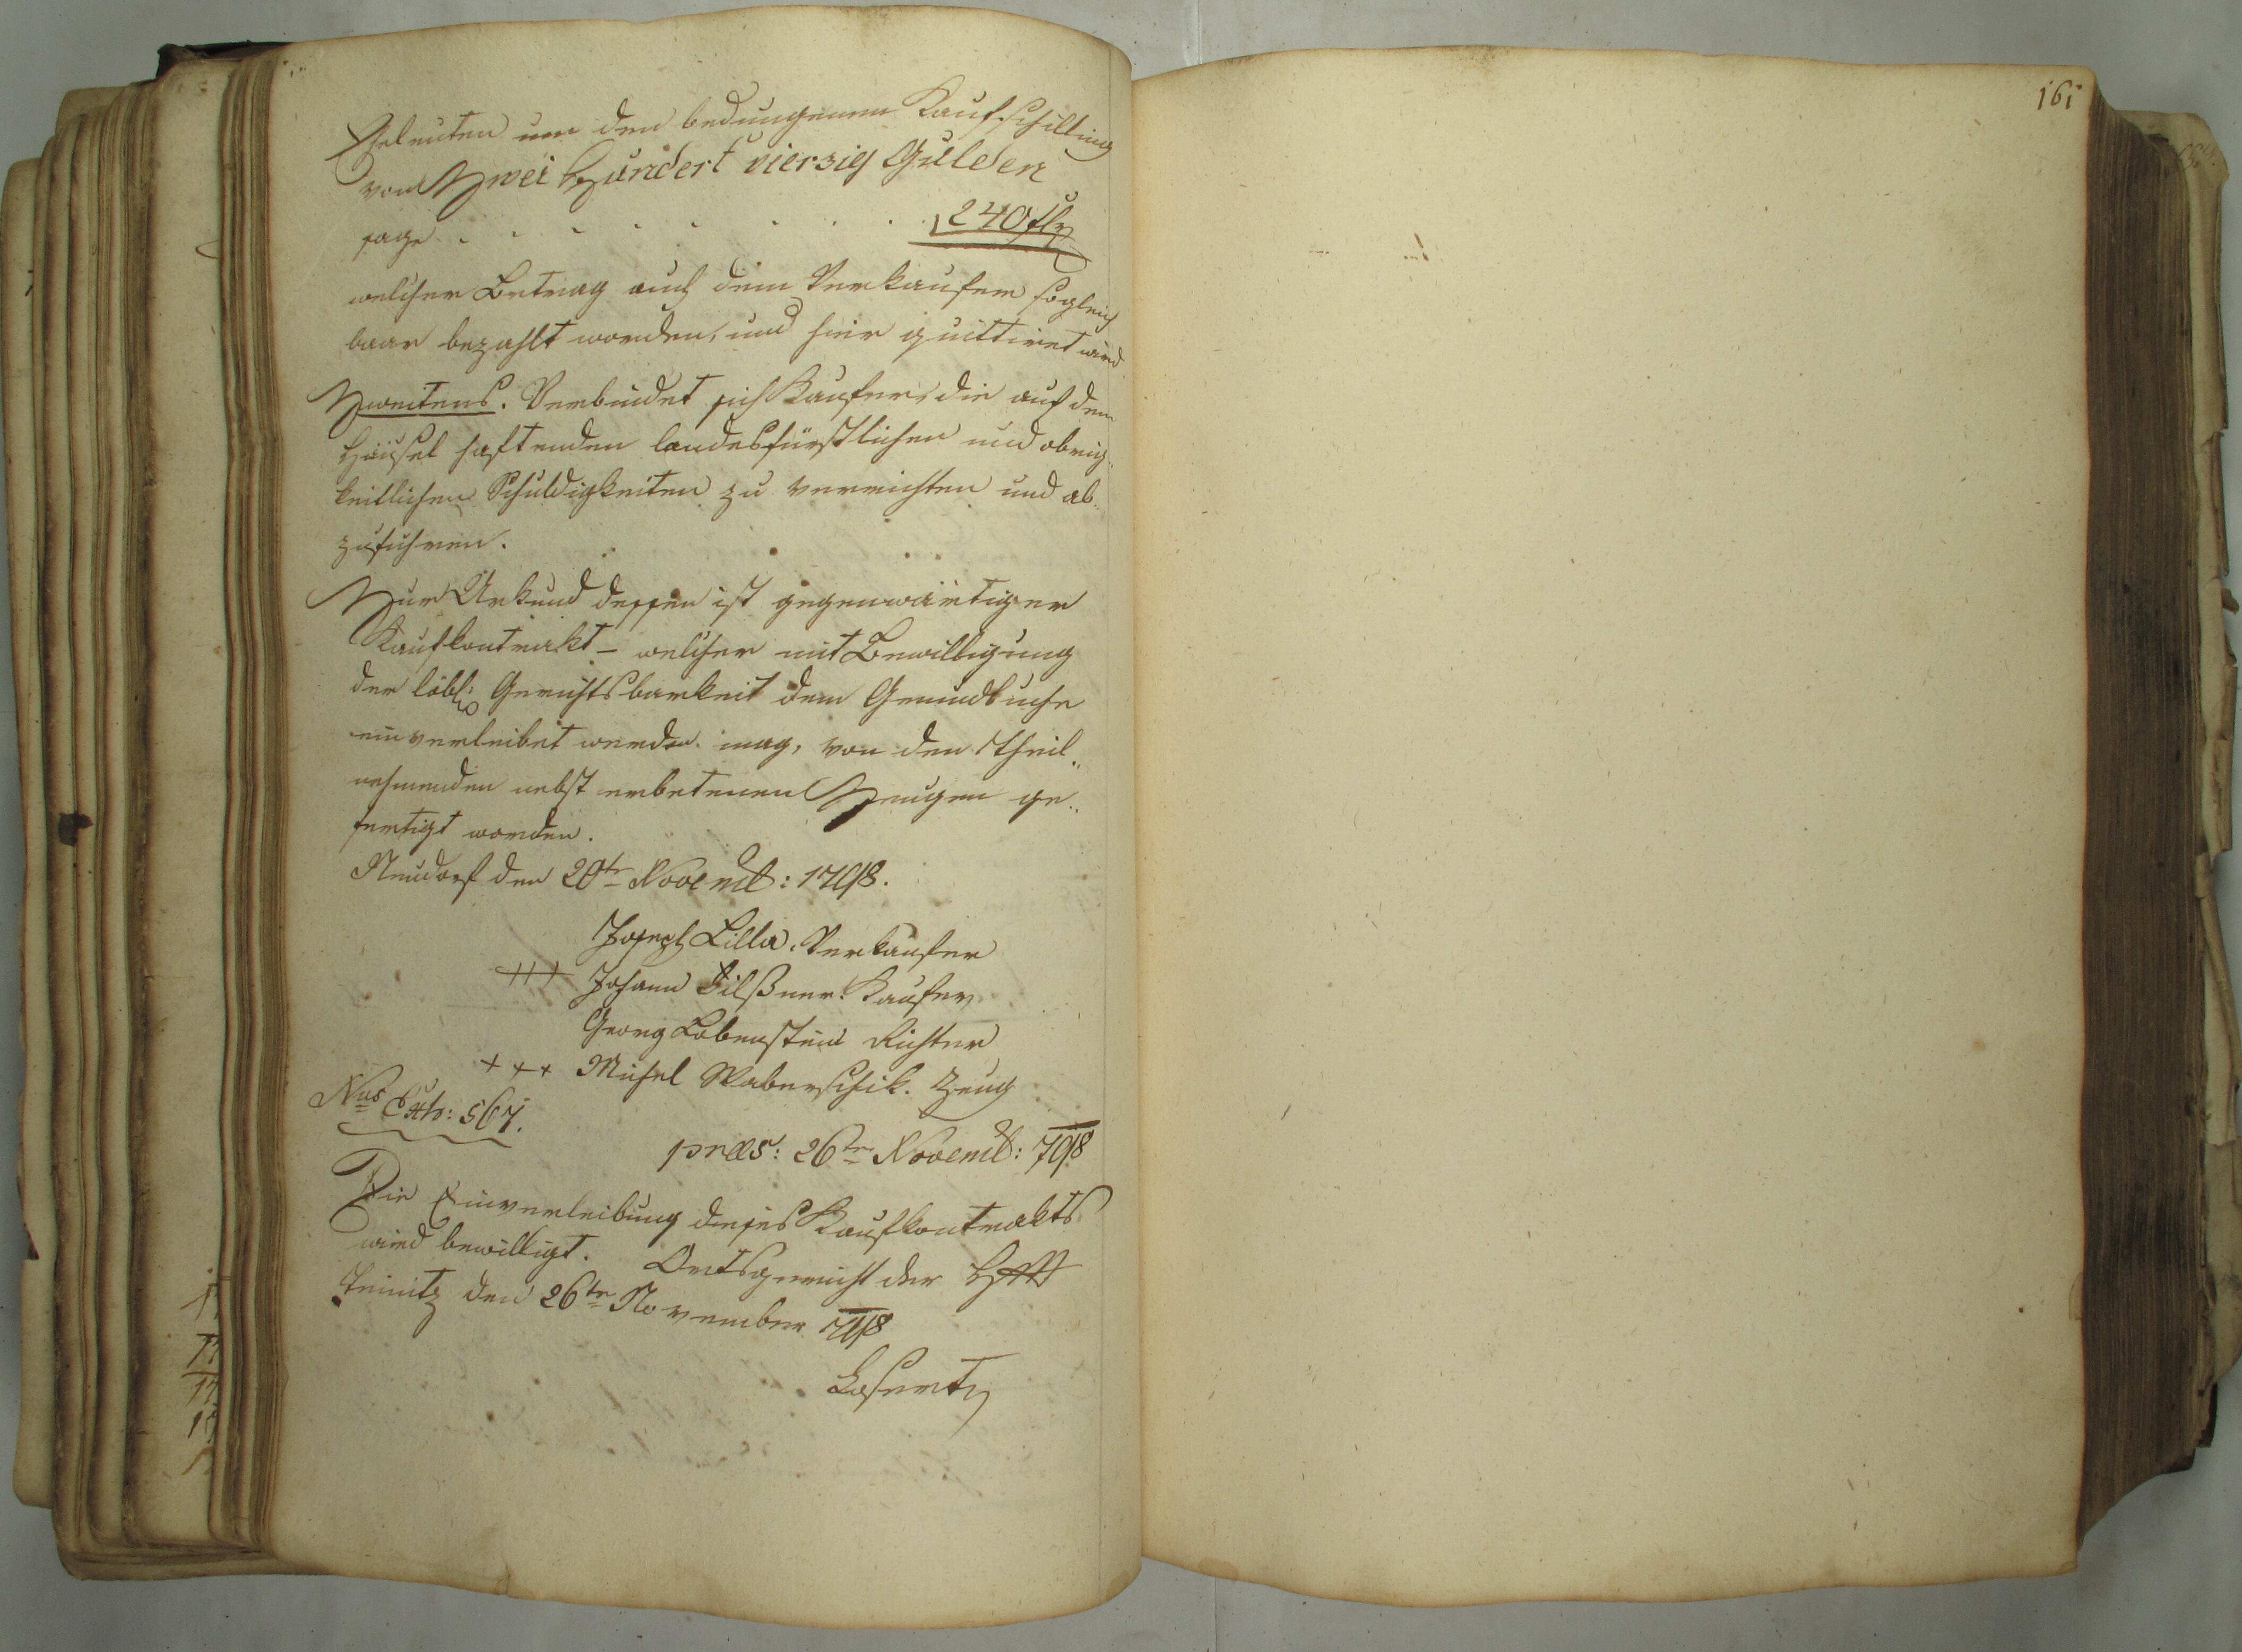 Eheleuten um den bedungenen Kaufschilling
von Zwei Hundert vierzig Gulden
sage . . . . . . . . 240 fl
welcher Betrag auch dem Verkaufer sogleich
baar bezahlt worden, und hier quittiret wird.
Zweitens. Verbindet sich Kaufer, die auf dem
Häusel haftenden landesfürstlichen und obrig„
keitlichen Schuldigkeiten zu verrichten und ab„
zuführen.
Zur Urkund dessen ist gegenwärtiger
Kaufkontrakt – welcher mit Bewilligung
der löbl: Gerichtsbarkeit dem Grundbuche
einverleibet werden mag, von den Theil„
nehmenden nebst erbetenen Zeugen ge„
fertigt worden.
Neudorf den 20tr Novemb: 1798.
Joseph Lilla. Verkaufer
+++ Johann Kaufer
Georg Lobenstein Richter
+++ Michel Waberschik. Zeug
Nus Exh: 567.
præs: 26tr Novemb: 798
Die Einverleibung dieses Kaufkontrakts
wird bewilligt. Ortsgericht der
den 26tn November 798
Loserth
161